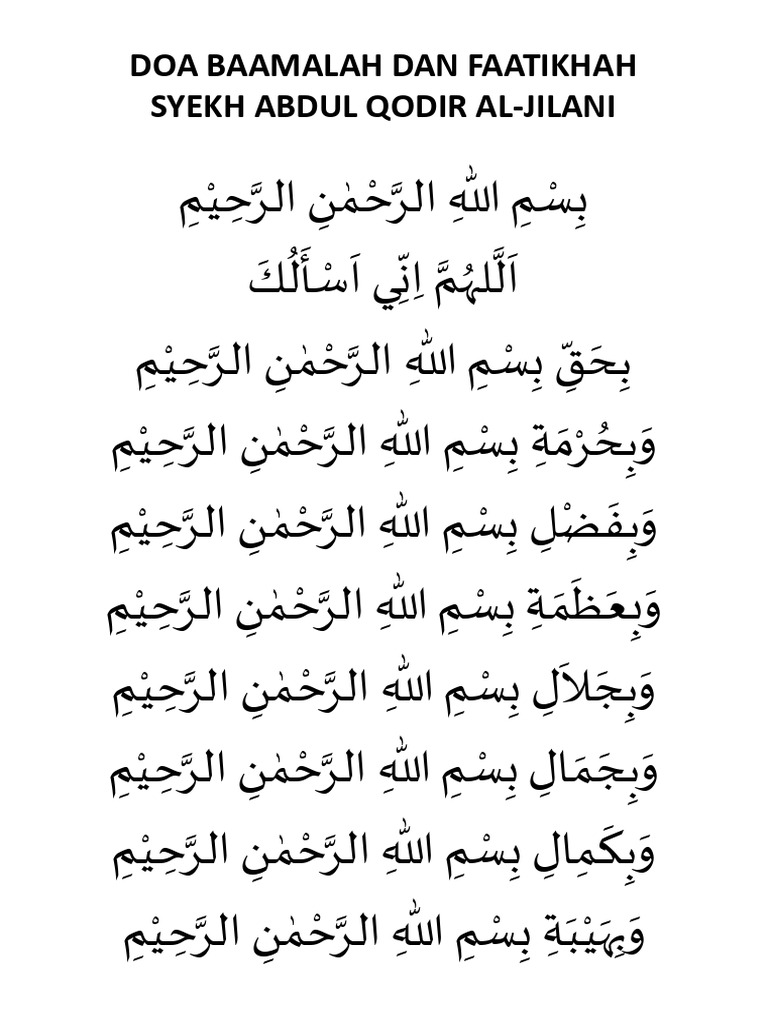 DOA BAAMALAH DAN FAATIKHAH
SYEKH ABDUL QODIR AL-JILANI
بِسْمِ اللهِ الرَّحْمٰنِ الرَّحِيْمِ
اَللَّهُمَّ اِنِّي اَسْأَلُكَ
بِحَقِّ بِسْمِ اللهِ الرَّحْمٰنِ الرَّحِيْمِ
وَبِحُرْمَةِ بِسْمِ اللهِ الرَّحْمٰنِ الرَّحِيْمِ
وَبِفَضْلِ بِسْمِ اللهِ الرَّحْمٰنِ الرَّحِيْمِ
وَبِعَظَمَةِ بِسْمِ اللهِ الرَّحْمٰنِ الرَّحِيْمِ
وَبِجَلاَلِ بِسْمِ اللهِ الرَّحْمٰنِ الرَّحِيْمِ
وَبِجَمَالِ بِسْمِ اللهِ الرَّحْمٰنِ الرَّحِيْمِ
وَبِكَمِالِ بِسْمِ اللهِ الرَّحْمٰنِ الرَّحِيْمِ
وَبِهَيْبَةِ بِسْمِ اللهِ الرَّحْمٰنِ الرَّحِيْمِ